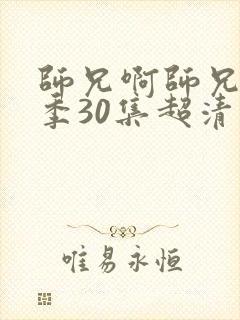 師兄啊師兄
季30集超清
唯易永恒